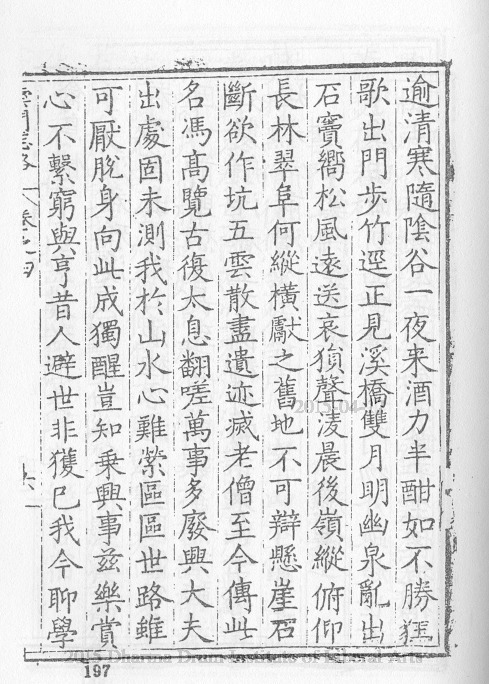 逾清寒隨陰谷一夜来酒力半酣如不勝狂
歌出門步竹逕正見溪橋雙月明幽泉亂出
石竇嚮松風遠送哀猿聲淩晨後嶺縱俯仰
長林翠阜何縱橫獻之舊地不可辯懸崖石
斷欲作坑五雲散盡遺迹滅老僧至今傳此
名馮高覽古復太息翻嗟萬事多廢興大夫
出處固未測我於山水心難縈區區世路雖
可厭脫身向此成獨醒豈知乗興事兹樂賞
心不繫窮與亨昔人避世非獲已我今聊學
雲門志略 卷之四
197
2015 Dharma Drum Institute of Liberal Arts